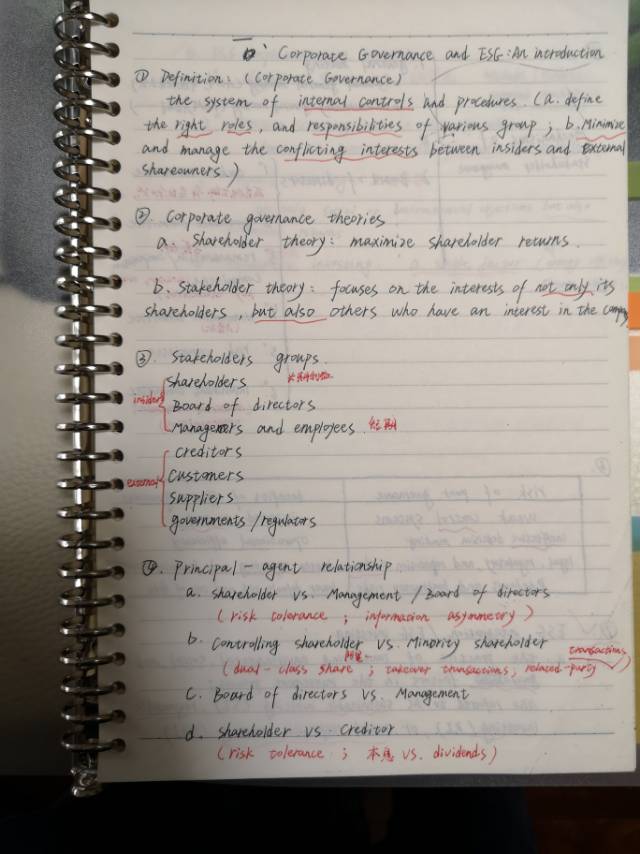 Corporate Governance and ESG: An introduction
① Definition: (Corporate Governance)
the system of internal controls and procedures. (a. define
the right roles, and responsibilities of various group; b. Minimize
and manage the conflicting interests between insiders and external
shareowners.)
② Corporate governance theories
a. Shareholder theory: maximize shareholder returns.
b. Stakeholder theory: focuses on the interests of not only its
shareholders, but also others who have an interest in the company
③. Stakeholders groups.
shareholders
insider Board of directors
Managers and employees.
creditors
external Customers
suppliers
governments/regulators
④. Principal-agent relationship
a. shareholder vs. Management / Board of directors
(risk tolerance; information asymmetry)
b. Controlling shareholder vs. Minority shareholder
(dual-class share; takeover transactions, related-party transactions)
C. Board of directors vs. Management
d. shareholder vs creditor
(risk tolerance; 本息 vs. dividends)